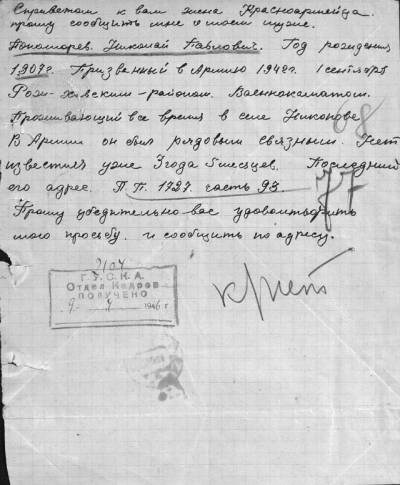 С приветом к вам жена Красноармейца.
прошу сообщить мне о моем муже.
Пономарев. Николай Павлович. Год рождения
1907г. Призванный в Армию 1942г. 1 сентября
районом. Военкоматом.
Проживающий все время в селе Никонове
68
В Армии он был рядовым связным. Нет
известия уже 3 года 5 месяцев. Последний
его адрес. П.П. 1927. часть 93.
Прошу убедительно вас удовлетворить
мою просьбу. и сообщить по адресу.
Отдел Кадров
ПОЛУЧЕНО
1946 г